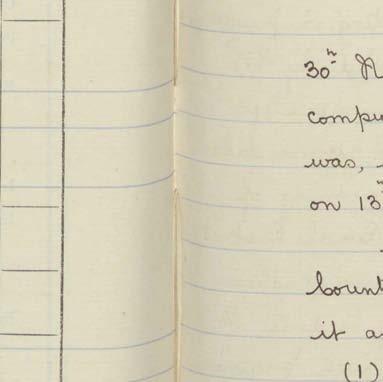 30th
compu
was,
on 13
bount
it a
(1)